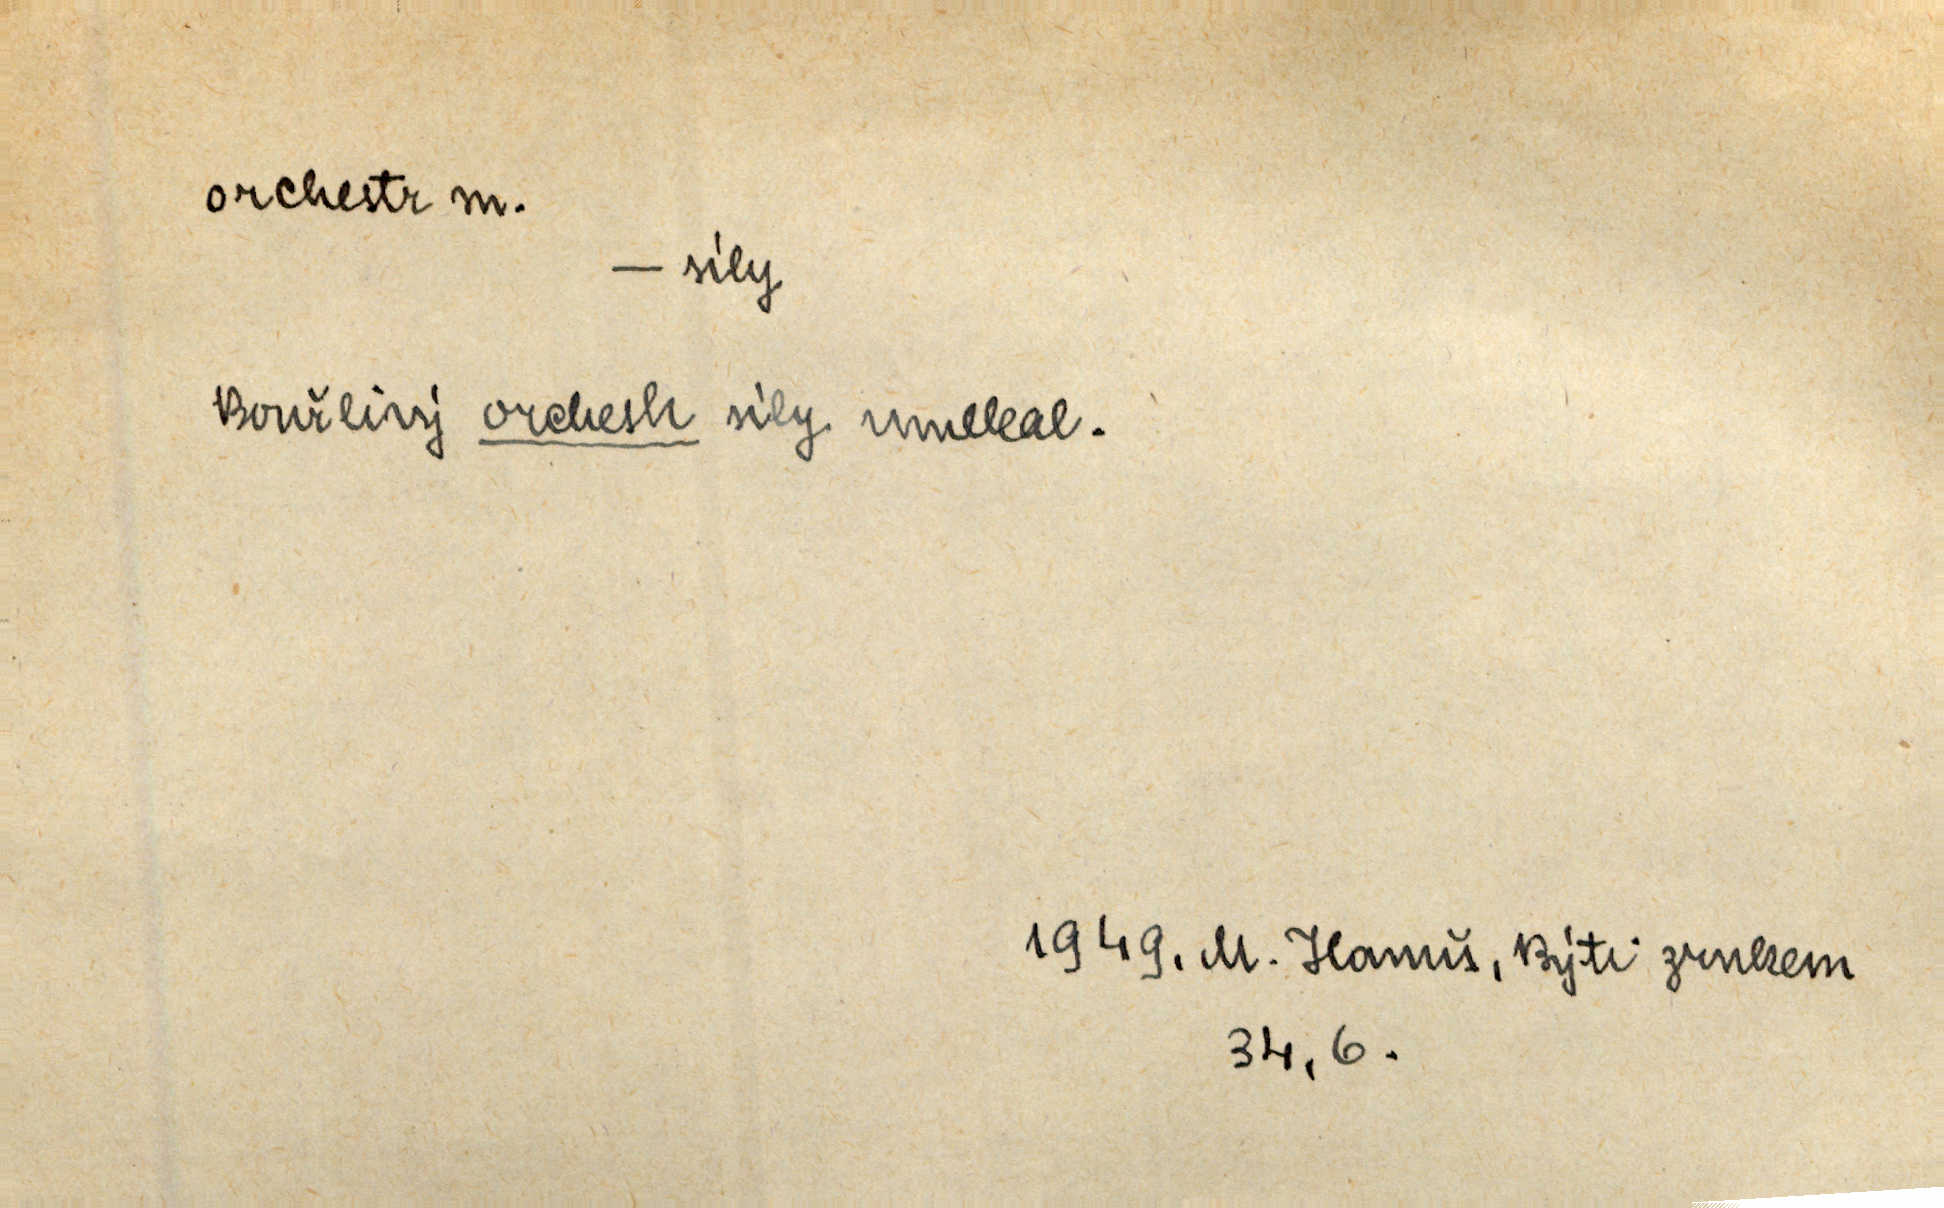 orchestr m.
— síly
Bouřlivý orchestr síly umlkal.
1949, M. Hanuš, Býti zrnkem
34, 6.